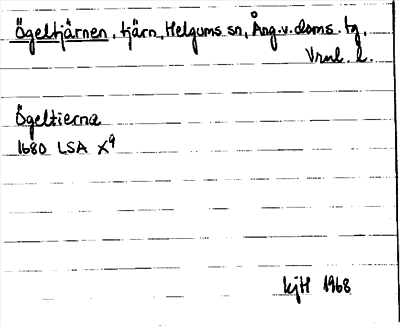 Ögeltjärnen, tjärn, Helgums sn, Ång. v. doms. tg,
Vrnl. l.
Ögeltierna
1680 LSA X9
kjH 1968